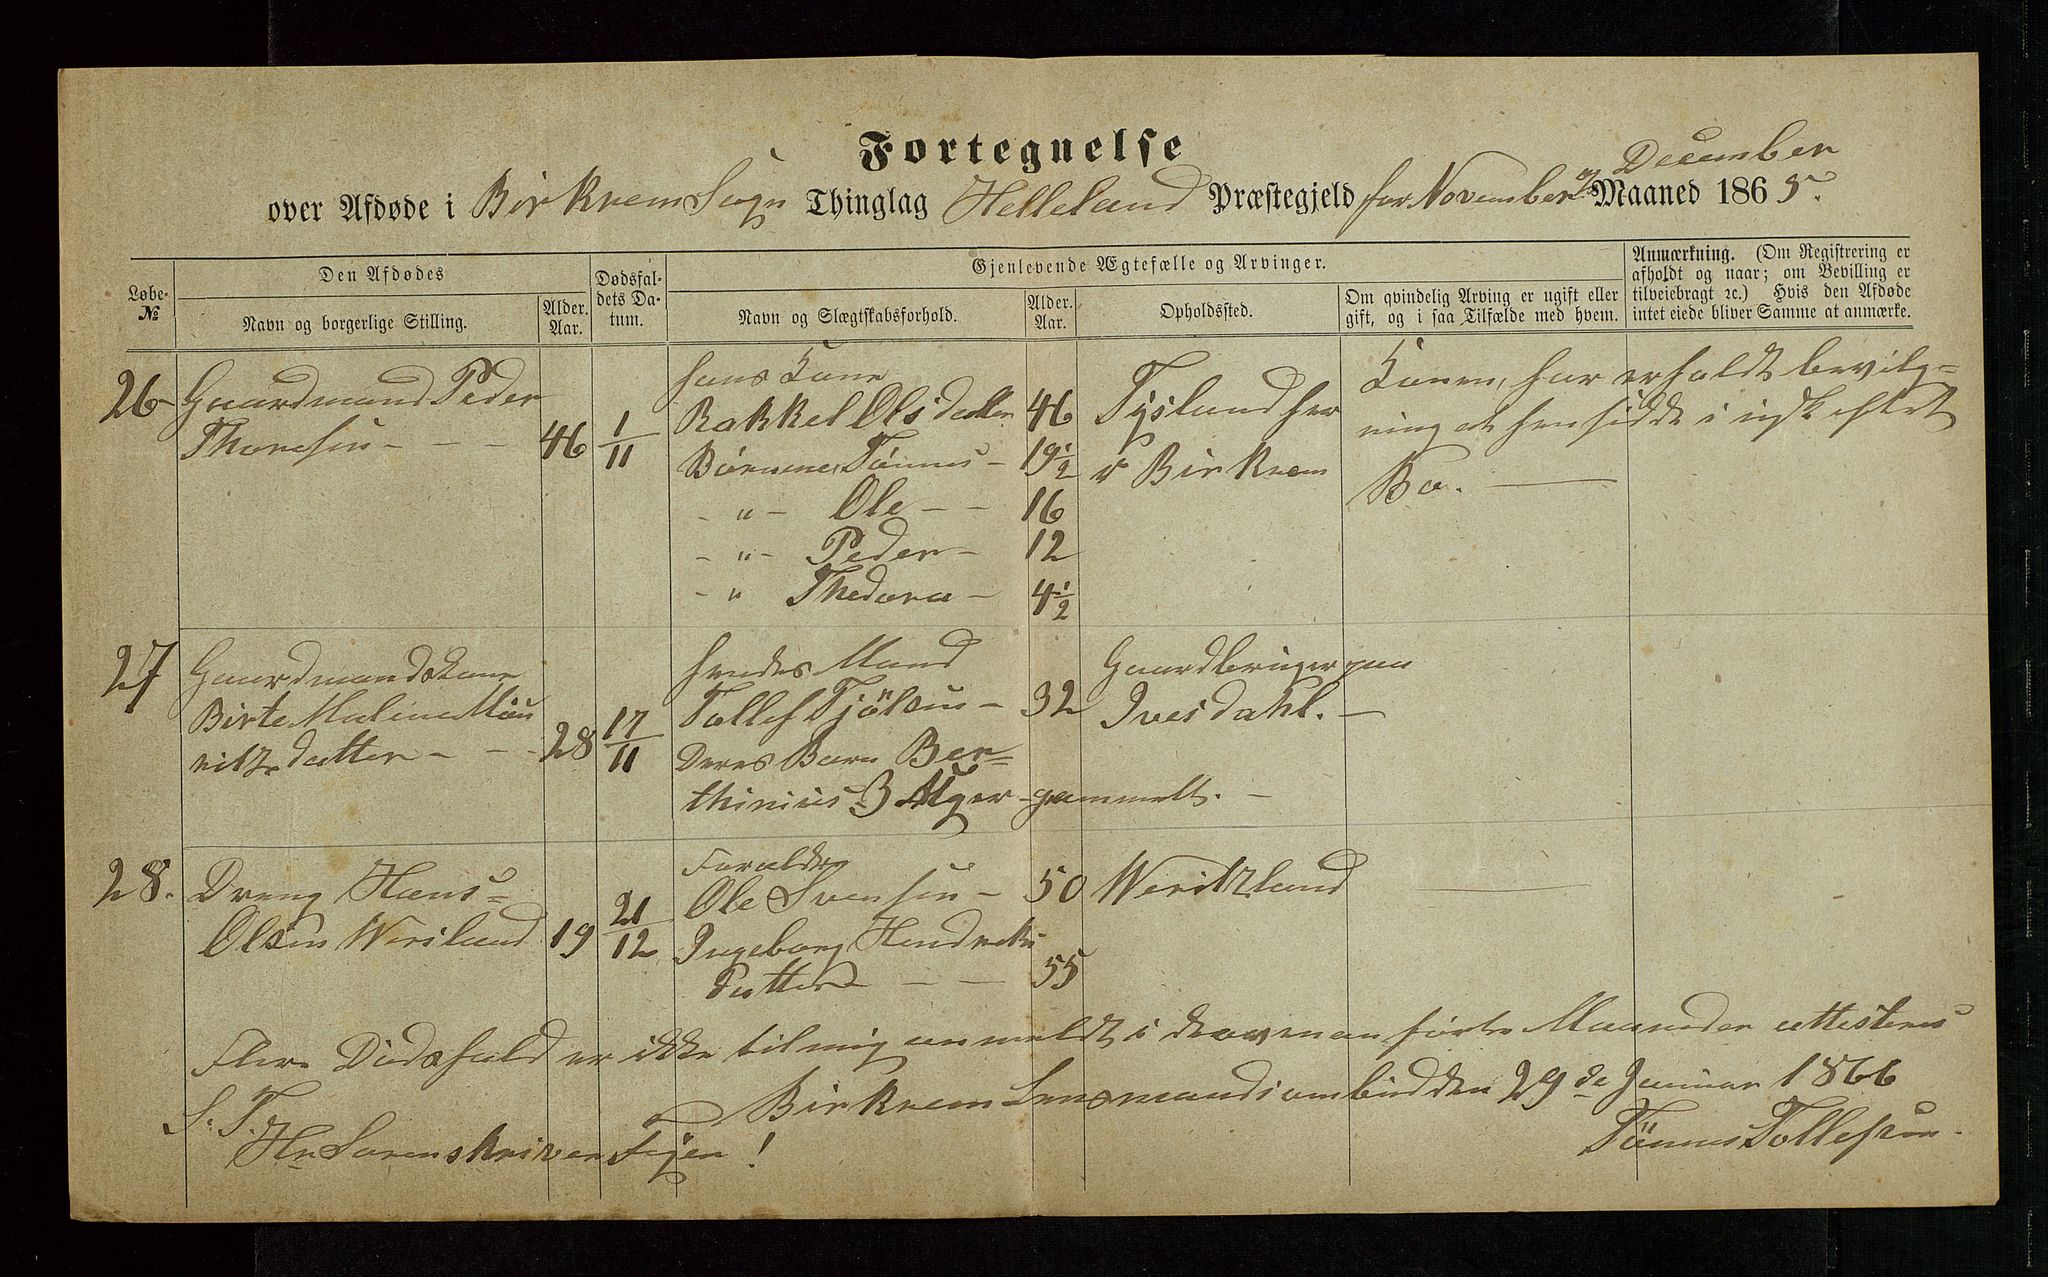 Fortegnelse
over Afdøde i Birkrem Sogn Thinglag Helleland Præstegjeld for November og December Maaned 1865.
Løbe-
№
Den Afdødes
Navn og borgerlige Stilling.
Alder.
Aar.
Dødsfal-
dets Da-
tum.
Gjenlevende Ægtefælle og Arvinger.
Navn og Slægtskabsforhold.
Alder.
Aar.
Opholdssted.
Om qvindelig Arving er ugift eller
gift, og i saa Tilfælde med hvem.
Anmærkning. (Om Registrering er
afholdt og naar; om Bevilling er
tilveiebragt ꝛc.) Hvis den Afdøde
intet eiede bliver Samme at anmærke.
26 Gaardmand Peder
Thoresen - - - 46 1/11
hans Kone
Rakkel Olsdatter 46
Børnene, Tønnes - 19½
- " - Ole - - 16
- " - Peder - 12
- " Thedora - 4½
Tysland her
v Birkrem
Konen, har erholdt bevilg=
ning at hensidde i uskiftet
Bo.
27 Gaardmandskone
Birte Malene Mau
ritzdatter - - - 28 17/11
hendes Mand
Tollef Tjölsen - 32
Deres Barn Ber=
thinius 3 Uger gammelt. -
Gaardbruger paa
Ivesdahl. -
28. Dreng Hans=
Olsen Wersland 19 21/12
Foraldre
Ole Svensen - 50
Ingeborg Hendriks
datter - - - 55
Weritzland
Flere Dødsfald er ikke til mig anmeldt i de ovenanførte Maaneder attesteres
Birkrem Lensmandsombud den 29de Januar 1866
Tönnes Tollefsen.
S. T.
Hr Sorenskriver Feyer!